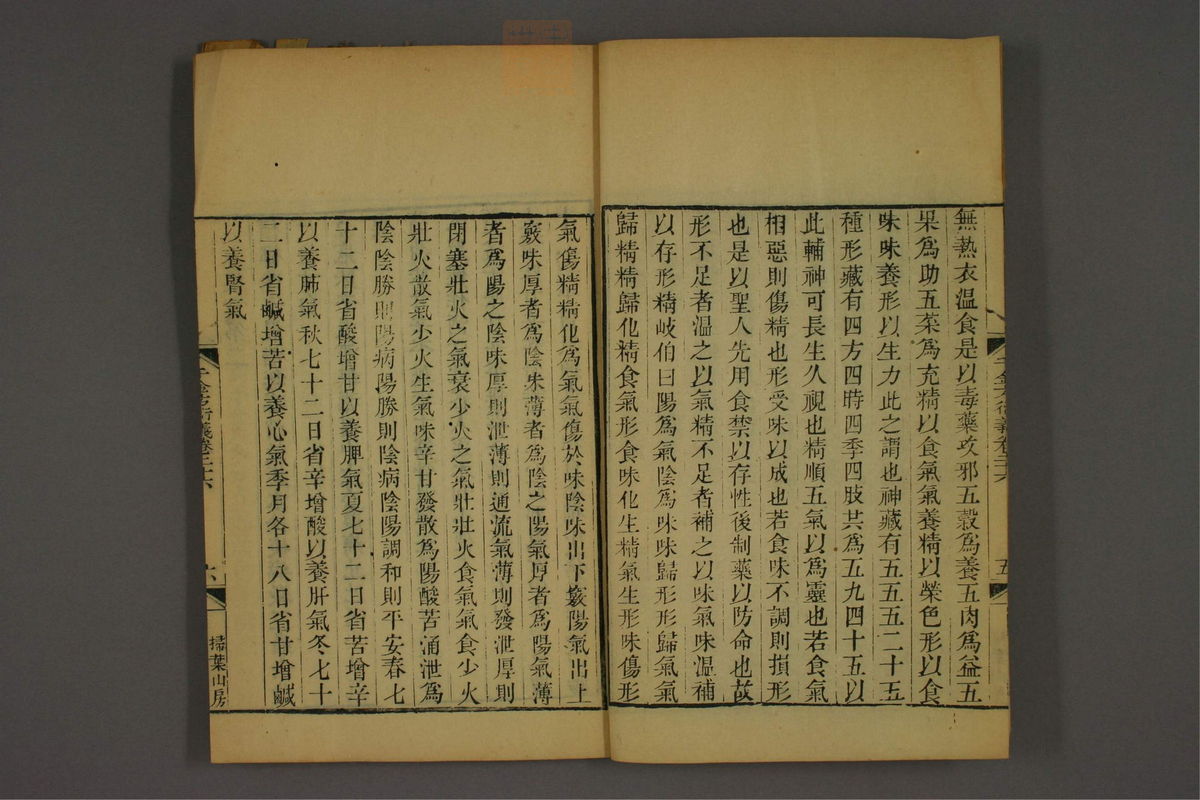 無熱衣温食是以毒藥攻邪五穀爲養五肉爲益五
果爲助五菜爲充精以食氣氣養精以榮色形以食
味味養形以生力此之謂也神藏有五五五二十五
種形藏有四方四時四季四肢共爲五九四十五以
此輔神可長生久視也精順五氣以爲靈也若食氣
相惡則傷精也形受味以成也若食味不調則損形
也是以聖人先用食禁以存性後制藥以防命也故
形不足者温之以氣精不足者補之以味氣味温補
以存形精岐伯曰陽爲氣陰爲味味歸形形歸氣氣
歸精精歸化精食氣形食味化生精氣生形味傷形
氣傷精精化爲氣氣傷於味陰味出下竅陽氣出上
竅味厚者爲陰味薄者爲陰之陽氣厚者爲陽氣薄
者爲陽之陰味厚則泄薄則通流氣薄則發泄厚則
閉塞壯火之氣衰少火之氣壯壯火食氣氣食少火
壯火散氣少火生氣味辛甘發散爲陽酸苦涌泄爲
陰陰勝則陽病陽勝則陰病陰陽調和則平安春七
十二日省酸增甘以養脾氣夏七十二日省苦增辛
以養肺氣秋七十二日省辛增酸以養肝氣冬七十
二日省鹹增苦以養心氣季月各十八日省甘增鹹
以養腎氣
千金方衍義卷二十六
六
掃葉山房